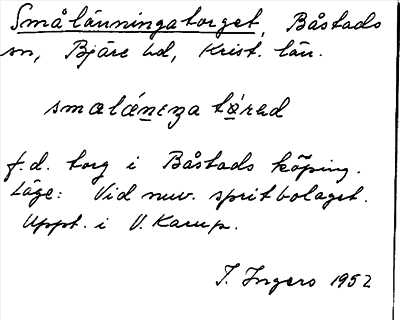 Smålänningatorget, Båstads
sn, Bjäre hd, Krist. län.
smalánɪŋa tǿrɛd
f.d. torg i Båstads köping.
Läge: Vid nuv. spritbolaget.
Uppt. i V. Karup.
I. Ingers 1952